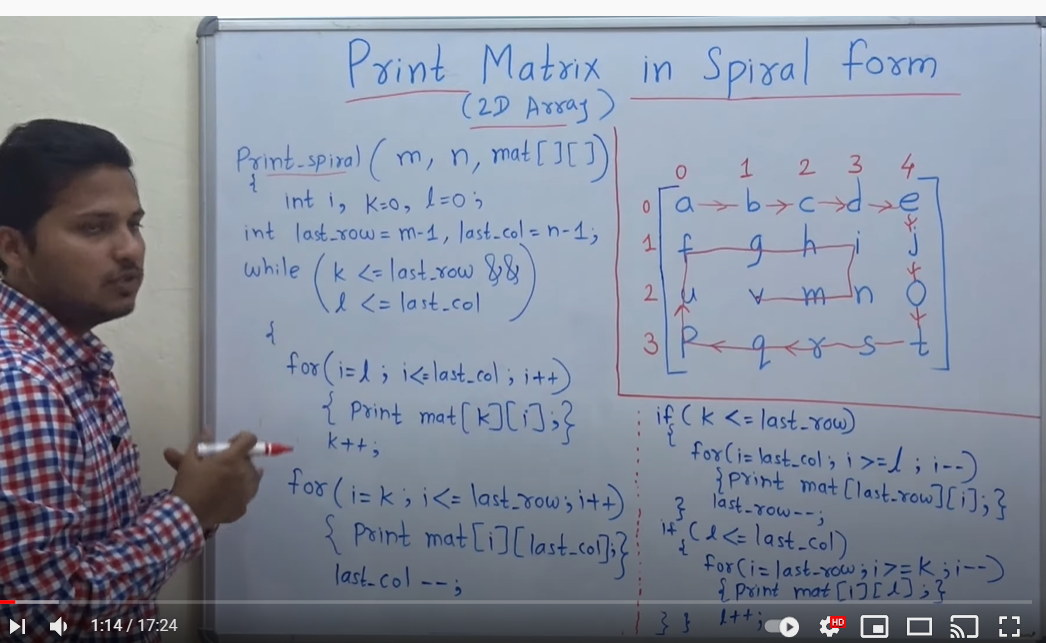 Print Matrix in Spiral form
(2D Array)
Print_spiral (m, n, mat[][])
{
int i, k=0, l=0;
int last_row = m-1, last_col = n-1;
while (k <= last_row &&
l <= last_col)
{
for(i=l; i<=last_col; i++)
{ Print mat[k][i]; }
k++;
for(i=k; i<=last_row; i++)
{ Print mat[i][last_col]; }
last_col --;
0 1 2 3 4
0 a b c d e
1 f g h i j
2 u v m n O
3 P q r s t
if (k <= last_row)
{
for(i=last_col; i>=l; i--)
{ Print mat[last_row][i]; }
} last_row--;
if (l <= last_col)
{
for(i=last_row; i>=k; i--)
{ Print mat[i][l]; }
} } l++;
1:14 / 17:24
HD